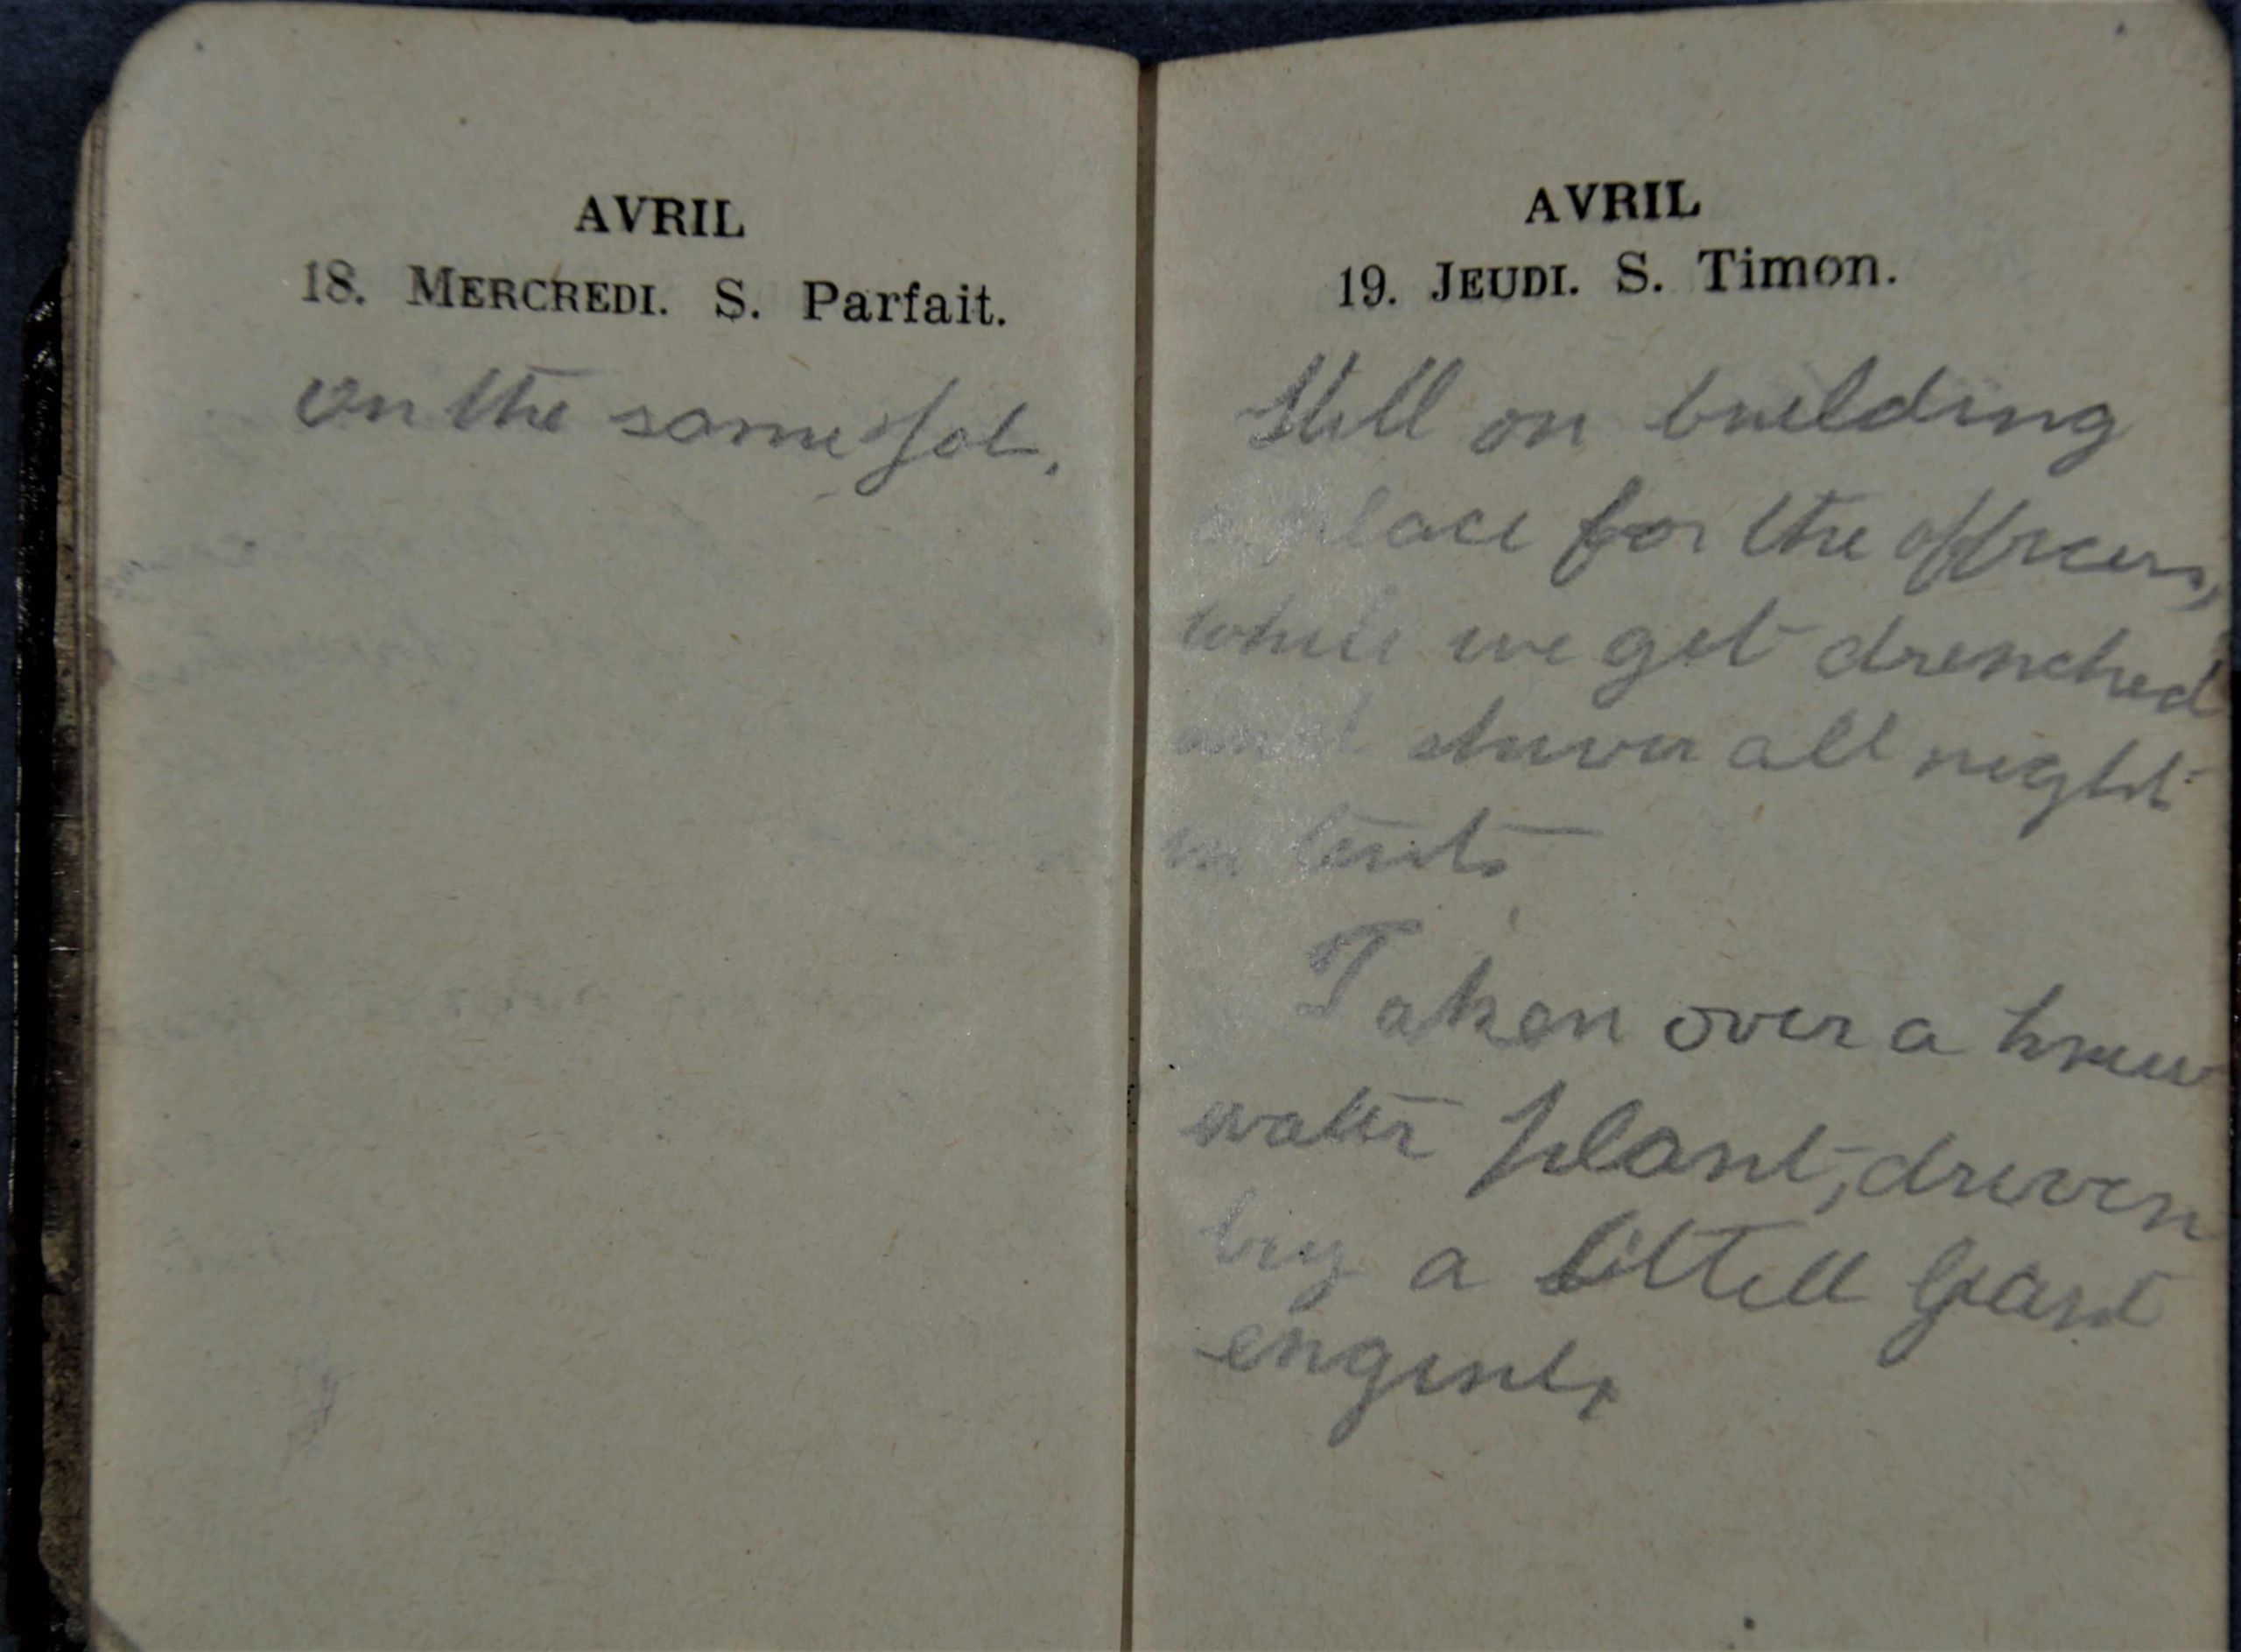 AVRIL
18. MERCREDI. S. Parfait.
On the same Job.
AVRIL
19. JEUDI. S. Timon.
Still on building
a place for the officers,
while we get drenched
and shiver all night
in tents
Taken over a
water plant, driven
by a Littell Giant
engine.